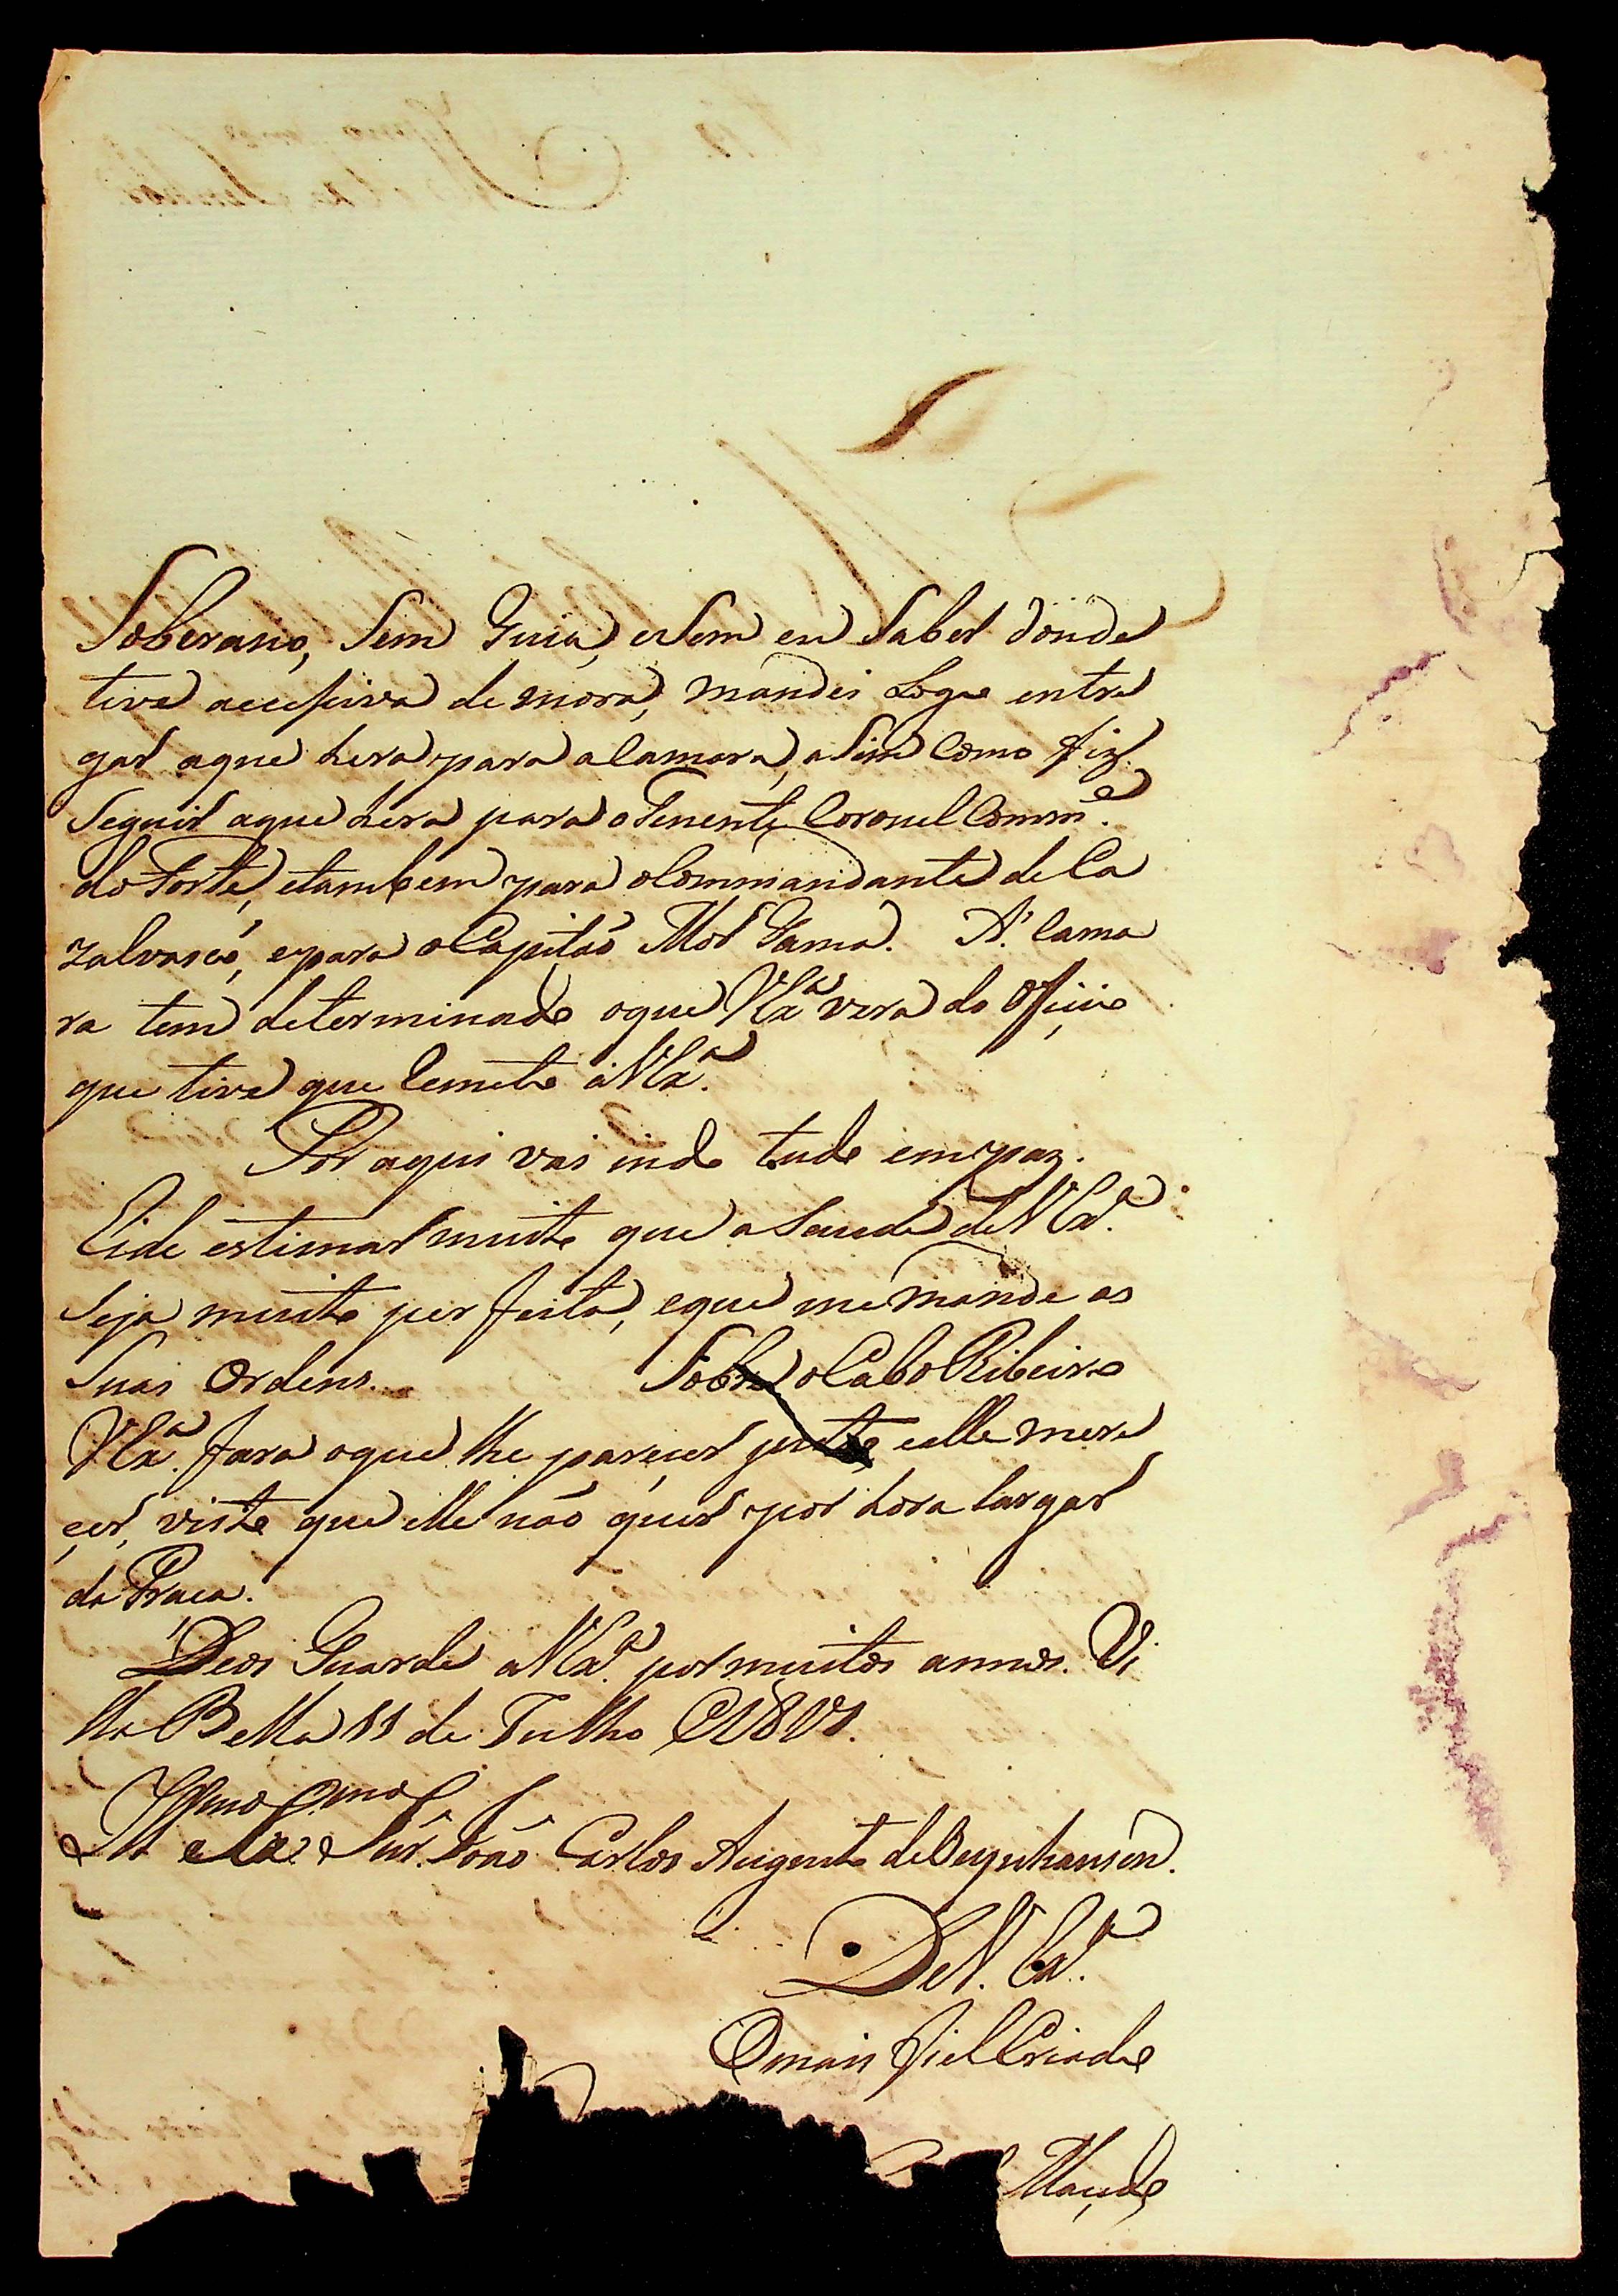 Soberano, Sem Guia, eSem eu Saber donde
tive accesiva demora, mandei Logo entre
gar aque hera para aCamara, aSim Como fiz
Seguir aque hera para oTenente Coronel Comm.e
do Forte, etambem para oCommandante de Ca
zalvasco, epara oCapitaõ Mor Gama. A' Cama
ra tem determinado oque VEx.a vera do Officio
que tive que Remeto áVEx.a
Por aqui vai indo tudo em paz.
Eide estimar muito que aSaude deVEx.a
Seja muito perfeita, eque memande as
Suas Ordens. Sobre oCabo Ribeiro
VEx.a fara oque lhe pareçer justo eelle mere
çer, visto que elle não quer por hora largar
da Praça.
Deos Guarde aVEx.a por muitos annos. Vi
lla Bella 11 de Julho
Illmo Exmo
Snr. Joaõ Carlos Augusto deOeynhausen.
DeV. Ex.a
Omais fiel Criado